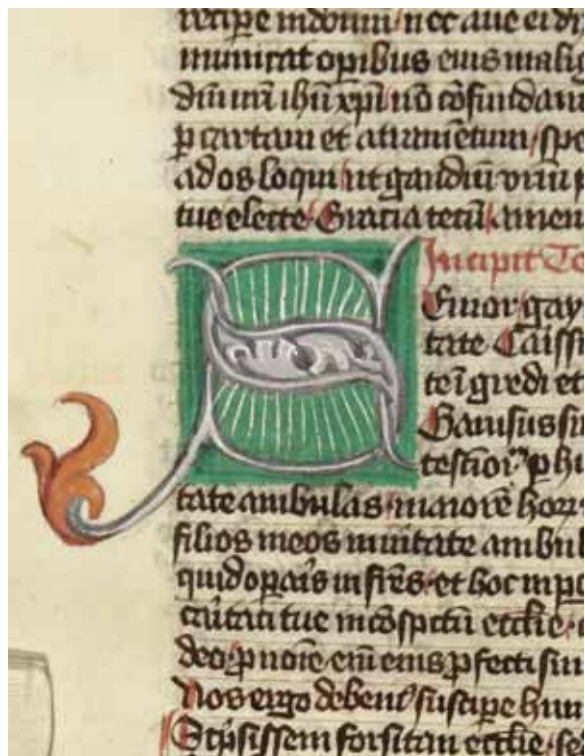 recipe in domū nec aue ei dix
municat opibus eius malig
dūm nrī ihū xp̄i nō cōfundam
p cartam et atramētum spe
ad os loqui ut gaudiū vrm̄ p
tue electe Gracia tecū amen
Incipit Te
S Enior gay
tate Caissi
teī gredi et
Gauisus su
testiōr phi
tate ambulas maiorē horr
filios meos ī uitate ambul
quid opa'is in frēs et hoc in pe
caritati tue in cōspectu ecclie
deo p noīe em̄ eius pfecti sun
Nos ergo debem' suscipe hui
Scripsissem forsitan ecclie s